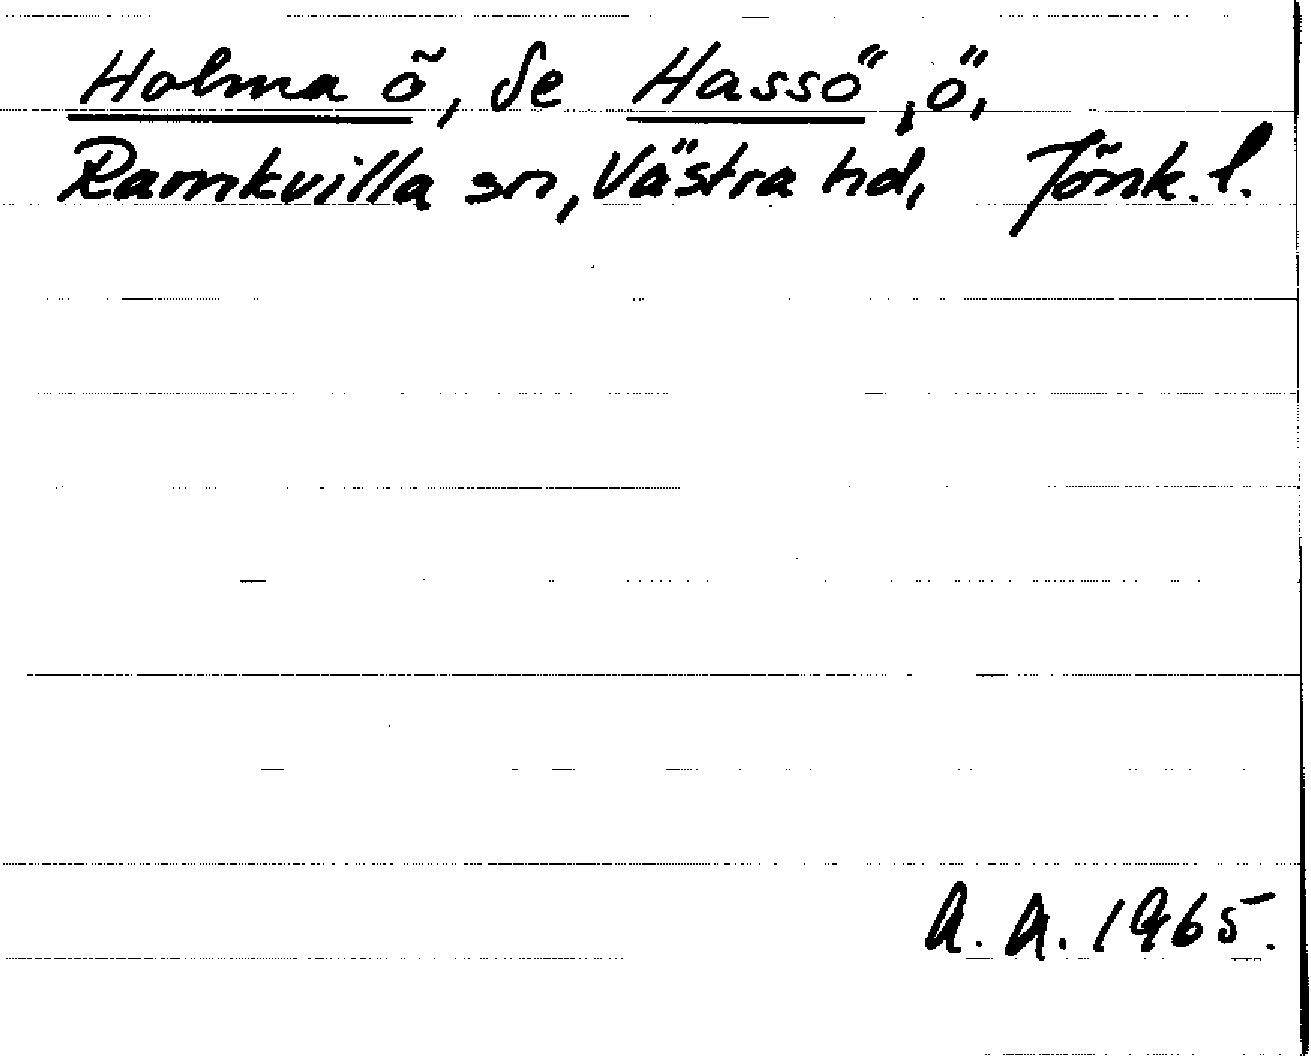 Holma ö, se Hassö, ö,
Ramkvilla sn, Västra hd, Jönk. l.
A. A. 1965.